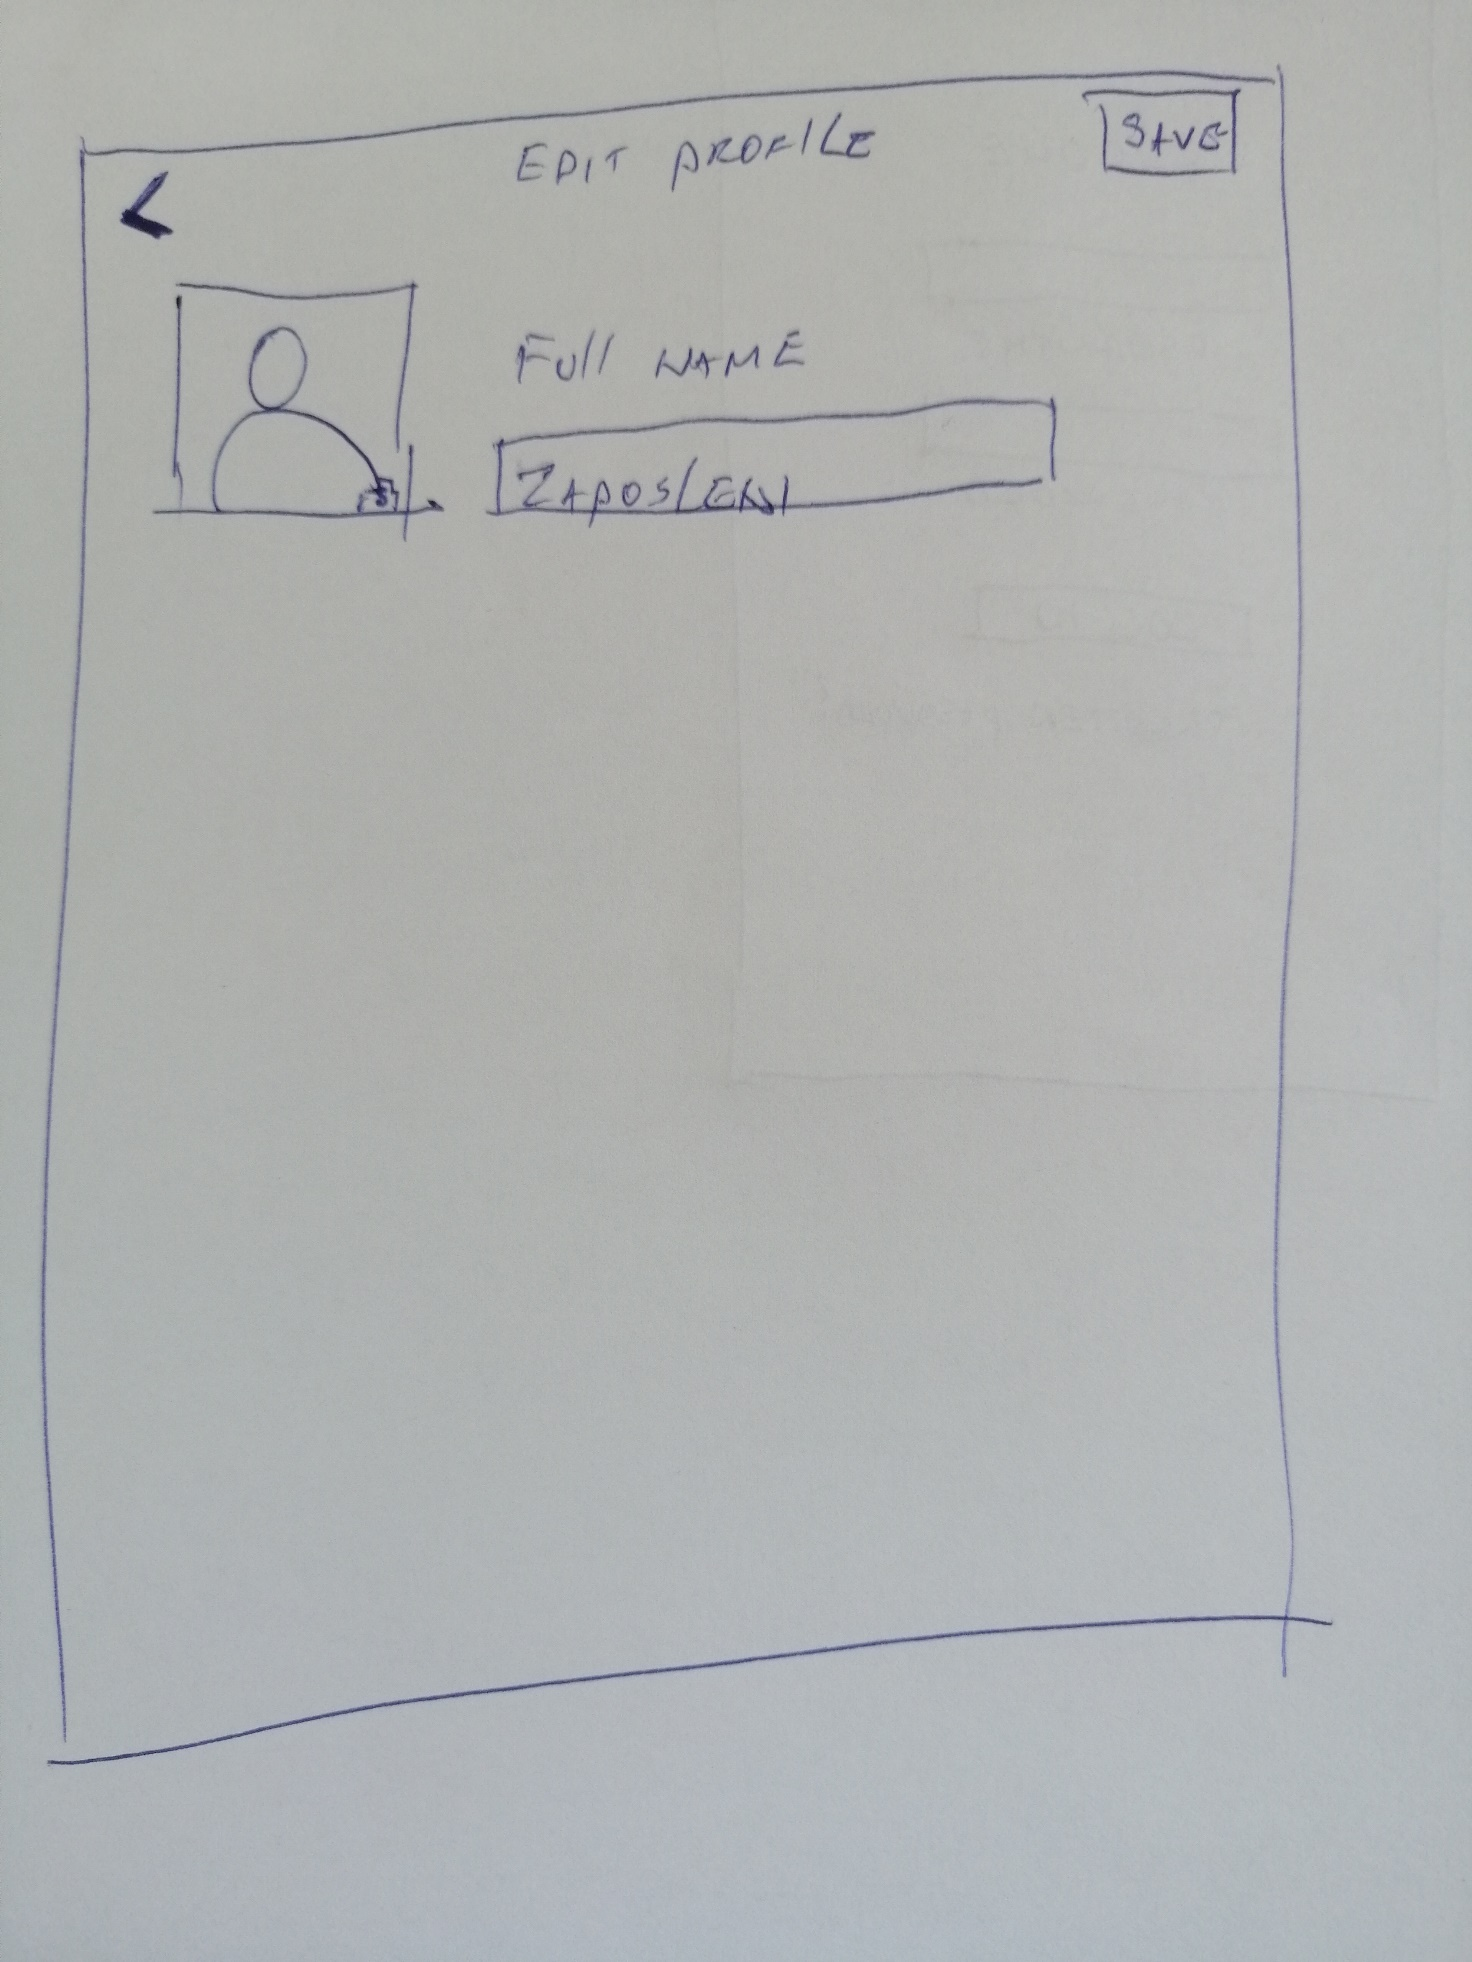 EDIT PROFILE
SAVE
Full NAME
ZAPOSLENI